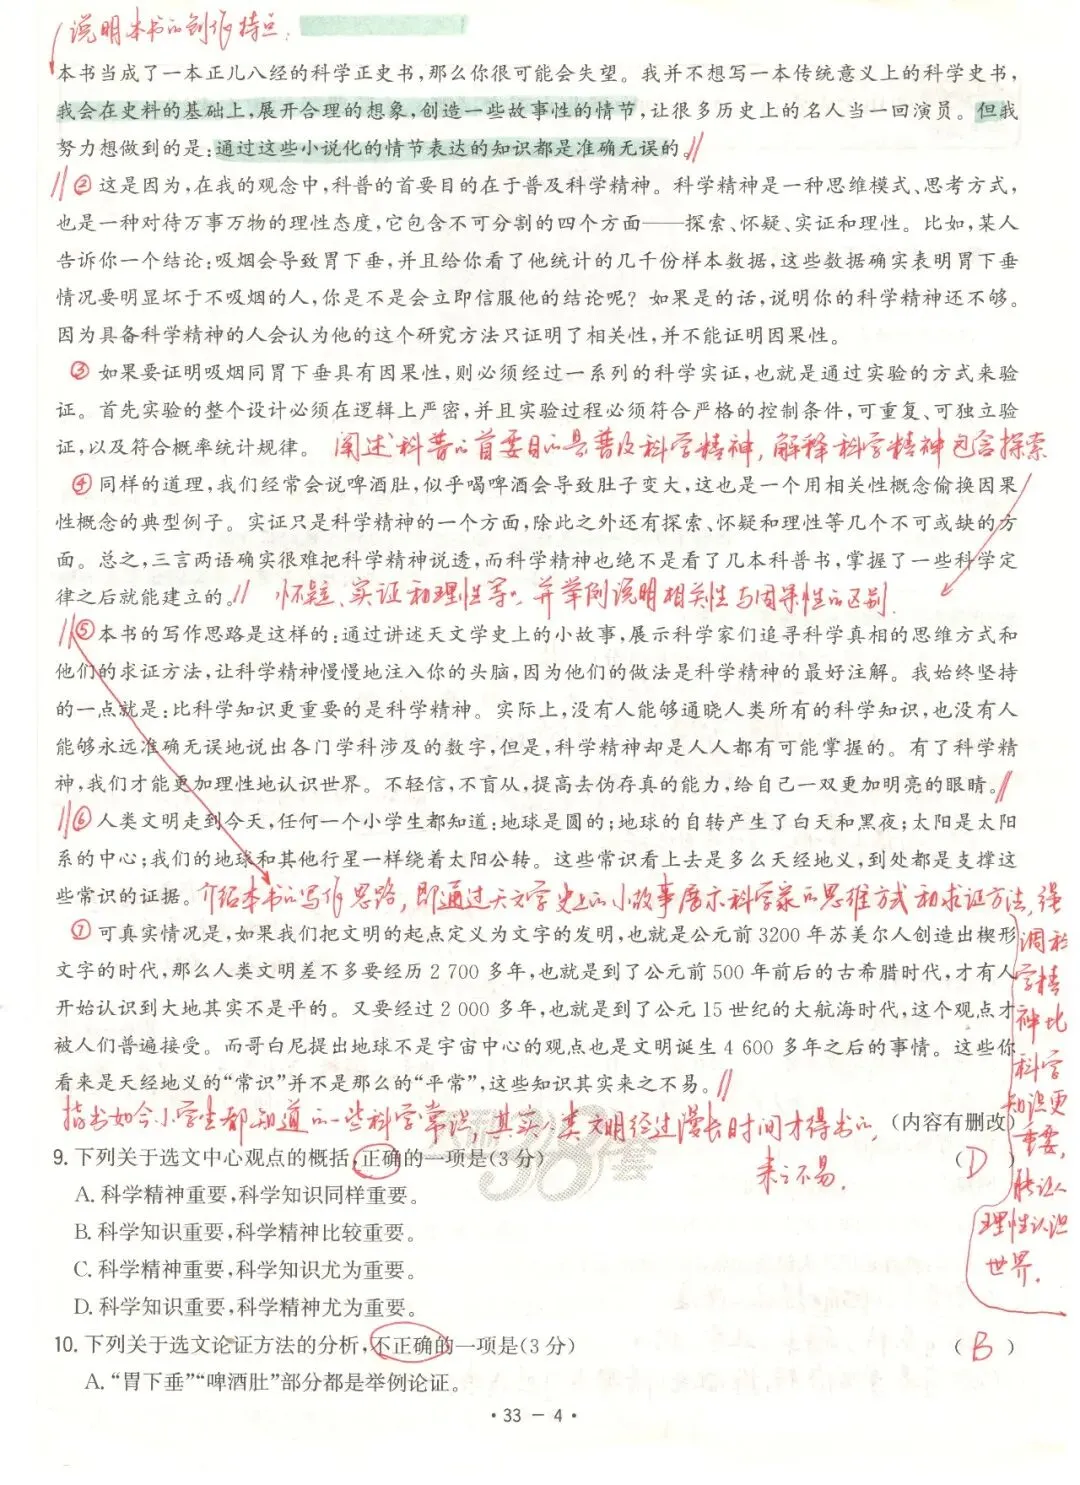 说明本书的创作特点：
本书当成了一本正儿八经的科学正史书，那么你很可能会失望。我并不想写一本传统意义上的科学史书，
我会在史料的基础上，展开合理的想象，创造一些故事性的情节，让很多历史上的名人当一回演员。但我
努力想做到的是：通过这些小说化的情节表达的知识都是准确无误的。
②这是因为，在我的观念中，科普的首要目的在于普及科学精神。科学精神是一种思维模式、思考方式，
也是一种对待万事万物的理性态度，它包含不可分割的四个方面——探索、怀疑、实证和理性。比如，某人
告诉你一个结论：吸烟会导致胃下垂，并且给你看了他统计的几千份样本数据，这些数据确实表明胃下垂
情况要明显坏于不吸烟的人，你是不是会立即信服他的结论呢？如果是的话，说明你的科学精神还不够。
因为具备科学精神的人会认为他的这个研究方法只证明了相关性，并不能证明因果性。
③如果要证明吸烟同胃下垂具有因果性，则必须经过一系列的科学实证，也就是通过实验的方式来验
证。首先实验的整个设计必须在逻辑上严密，并且实验过程必须符合严格的控制条件，可重复、可独立验
证，以及符合概率统计规律。阐述科普的首要目的是普及科学精神，解释科学精神包含探索
④同样的道理，我们经常会说啤酒肚，似乎喝啤酒会导致肚子变大，这也是一个用相关性概念偷换因果
性概念的典型例子。实证只是科学精神的一个方面，除此之外还有探索、怀疑和理性等几个不可或缺的方
面。总之，三言两语确实很难把科学精神说透，而科学精神也绝不是看了几本科普书，掌握了一些科学定
律之后就能建立的。怀疑、实证和理性等，并举例说明相关性与因果性的区别.
⑤本书的写作思路是这样的：通过讲述天文学史上的小故事，展示科学家们追寻科学真相的思维方式和
他们的求证方法，让科学精神慢慢地注入你的头脑，因为他们的做法是科学精神的最好注解。我始终坚持
的一点就是：比科学知识更重要的是科学精神。实际上，没有人能够通晓人类所有的科学知识，也没有人
能够永远准确无误地说出各门学科涉及的数字，但是，科学精神却是人人都有可能掌握的。有了科学精
神，我们才能更加理性地认识世界。不轻信，不盲从，提高去伪存真的能力，给自己一双更加明亮的眼睛。
⑥人类文明走到今天，任何一个小学生都知道：地球是圆的；地球的自转产生了白天和黑夜；太阳是太阳
系的中心；我们的地球和其他行星一样绕着太阳公转。这些常识看上去是多么天经地义，到处都是支撑这
些常识的证据。介绍本书的写作思路，即通过天文学史上的小故事展示科学家的思维方式和求证方法，强
⑦可真实情况是，如果我们把文明的起点定义为文字的发明，也就是公元前3200年苏美尔人创造出楔形
文字的时代，那么人类文明差不多要经历2 700多年，也就是到了公元前500年前后的古希腊时代，才有人
开始认识到大地其实不是平的。又要经过2 000多年，也就是到了公元15世纪的大航海时代，这个观点才
被人们普遍接受。而哥白尼提出地球不是宇宙中心的观点也是文明诞生4 600多年之后的事情。这些你
看来是天经地义的“常识”并不是那么的“平常”，这些知识其实来之不易。
调科
学精
神比
科学
知识更
重要，
能让人
理性认识
世界.
指出如今小学生都知道的一些科学常识，其实人类文明经过漫长时间才得出的，
来之不易.
（内容有删改）
9. 下列关于选文中心观点的概括，正确的一项是(3分) （D）
A. 科学精神重要，科学知识同样重要。
B. 科学知识重要，科学精神比较重要。
C. 科学精神重要，科学知识尤为重要。
D. 科学知识重要，科学精神尤为重要。
10. 下列关于选文论证方法的分析，不正确的一项是(3分) （B）
A. “胃下垂”“啤酒肚”部分都是举例论证。
·33－4·